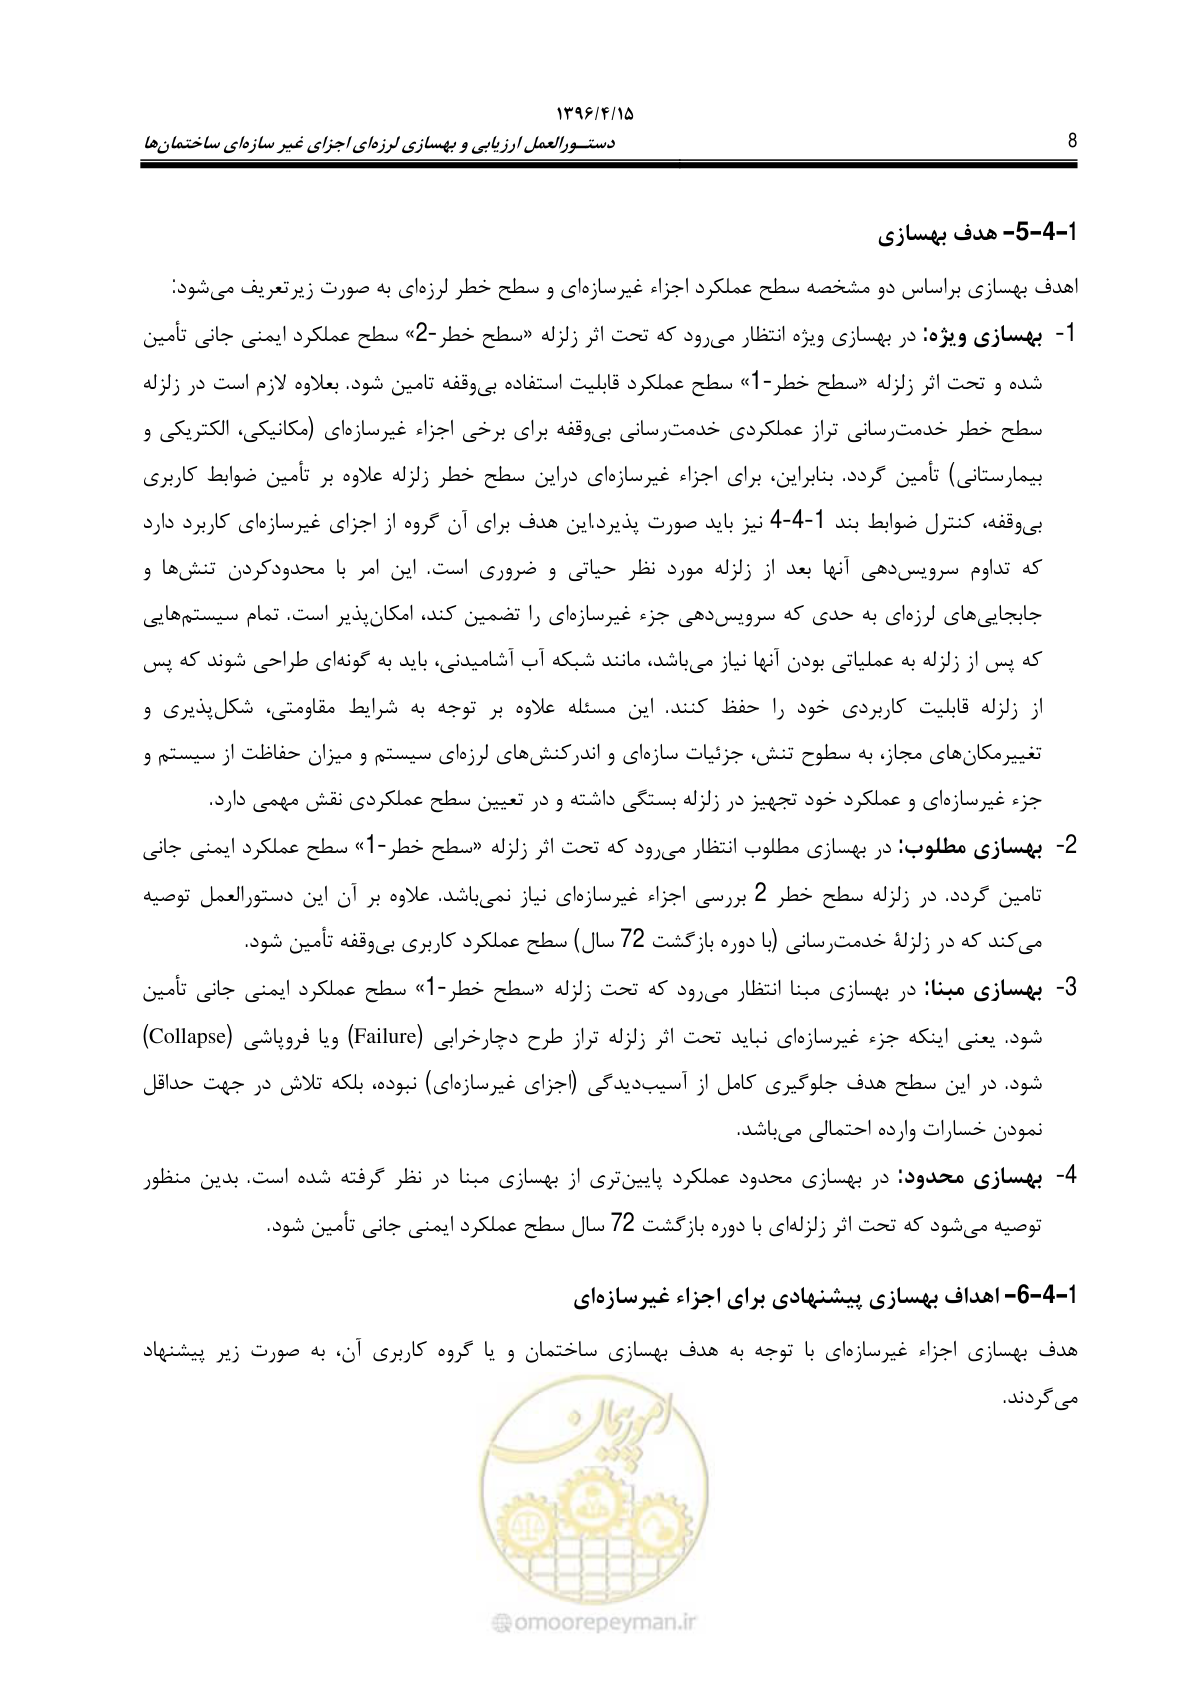 ۱۳۹۶/۴/۱۵
8 دستـورالعمل ارزیابی و بهسازی لرزه‌ای اجزای غیر سازه‌ای ساختمان‌ها
1-4-5- هدف بهسازی
اهدف بهسازی براساس دو مشخصه سطح عملکرد اجزاء غیرسازه‌ای و سطح خطر لرزه‌ای به صورت زیرتعریف می‌شود:
1- بهسازی ویژه: در بهسازی ویژه انتظار می‌رود که تحت اثر زلزله «سطح خطر-2» سطح عملکرد ایمنی جانی تأمین
شده و تحت اثر زلزله «سطح خطر-1» سطح عملکرد قابلیت استفاده بی‌وقفه تامین شود. بعلاوه لازم است در زلزله
سطح خطر خدمت‌رسانی تراز عملکردی خدمت‌رسانی بی‌وقفه برای برخی اجزاء غیرسازه‌ای (مکانیکی، الکتریکی و
بیمارستانی) تأمین گردد. بنابراین، برای اجزاء غیرسازه‌ای دراین سطح خطر زلزله علاوه بر تأمین ضوابط کاربری
بی‌وقفه، کنترل ضوابط بند 1-4-4 نیز باید صورت پذیرد.این هدف برای آن گروه از اجزای غیرسازه‌ای کاربرد دارد
که تداوم سرویس‌دهی آنها بعد از زلزله مورد نظر حیاتی و ضروری است. این امر با محدودکردن تنش‌ها و
جابجایی‌های لرزه‌ای به حدی که سرویس‌دهی جزء غیرسازه‌ای را تضمین کند، امکان‌پذیر است. تمام سیستم‌هایی
که پس از زلزله به عملیاتی بودن آنها نیاز می‌باشد، مانند شبکه آب آشامیدنی، باید به گونه‌ای طراحی شوند که پس
از زلزله قابلیت کاربردی خود را حفظ کنند. این مسئله علاوه بر توجه به شرایط مقاومتی، شکل‌پذیری و
تغییرمکان‌های مجاز، به سطوح تنش، جزئیات سازه‌ای و اندرکنش‌های لرزه‌ای سیستم و میزان حفاظت از سیستم و
جزء غیرسازه‌ای و عملکرد خود تجهیز در زلزله بستگی داشته و در تعیین سطح عملکردی نقش مهمی دارد.
2- بهسازی مطلوب: در بهسازی مطلوب انتظار می‌رود که تحت اثر زلزله «سطح خطر-1» سطح عملکرد ایمنی جانی
تامین گردد. در زلزله سطح خطر 2 بررسی اجزاء غیرسازه‌ای نیاز نمی‌باشد. علاوه بر آن این دستورالعمل توصیه
می‌کند که در زلزلهٔ خدمت‌رسانی (با دوره بازگشت 72 سال) سطح عملکرد کاربری بی‌وقفه تأمین شود.
3- بهسازی مبنا: در بهسازی مبنا انتظار می‌رود که تحت زلزله «سطح خطر-1» سطح عملکرد ایمنی جانی تأمین
شود. یعنی اینکه جزء غیرسازه‌ای نباید تحت اثر زلزله تراز طرح دچارخرابی (Failure) ویا فروپاشی (Collapse)
شود. در این سطح هدف جلوگیری کامل از آسیب‌دیدگی (اجزای غیرسازه‌ای) نبوده، بلکه تلاش در جهت حداقل
نمودن خسارات وارده احتمالی می‌باشد.
4- بهسازی محدود: در بهسازی محدود عملکرد پایین‌تری از بهسازی مبنا در نظر گرفته شده است. بدین منظور
توصیه می‌شود که تحت اثر زلزله‌ای با دوره بازگشت 72 سال سطح عملکرد ایمنی جانی تأمین شود.
1-4-6- اهداف بهسازی پیشنهادی برای اجزاء غیرسازه‌ای
هدف بهسازی اجزاء غیرسازه‌ای با توجه به هدف بهسازی ساختمان و یا گروه کاربری آن، به صورت زیر پیشنهاد
می‌گردند.
امور پیمان
@omoorepeyman.ir